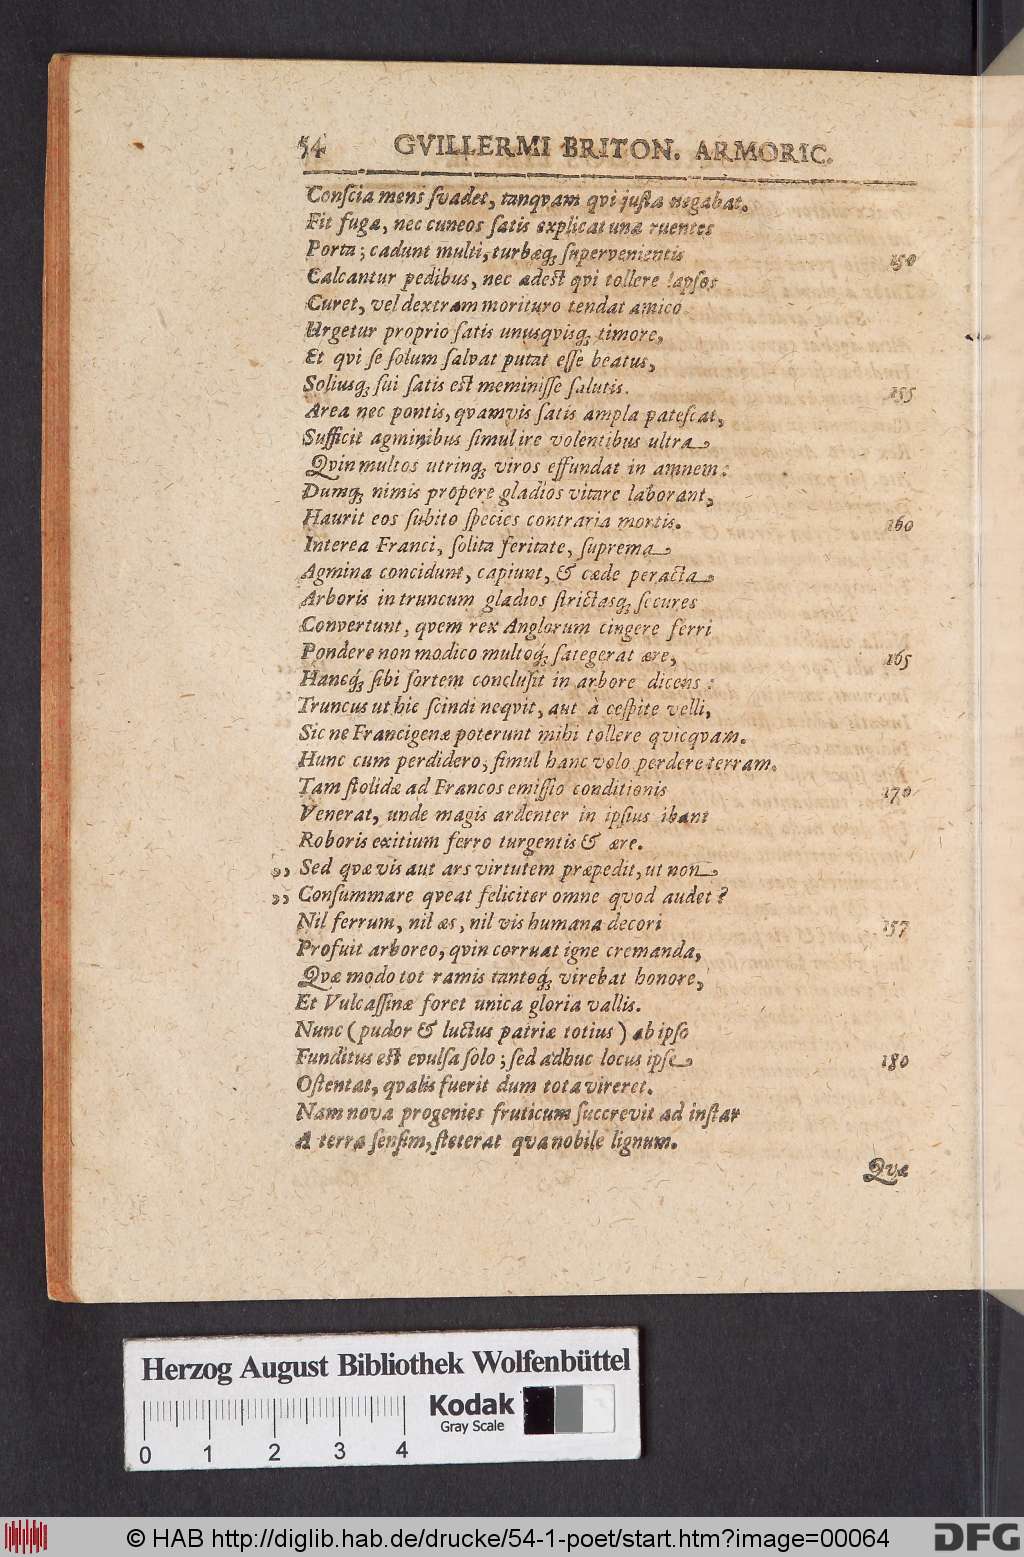 54 GVILLERMI BRITON. ARMORIC.
Conſcia mens ſvadet, tanqvam qvi juſta negabat.
Fit fuga, nec cuneos ſatis explicat una ruentes
Porta; cadunt multi, turbæq; ſupervenientis 150
Calcantur pedibus, nec adest qvi tollere lapſos
Curet, vel dextram morituro tendat amico.
Urgetur proprio ſatis unusqvisq; timore,
Et qvi ſe ſolum ſalvat putat eſſe beatus,
Soliusq; ſui ſatis est meminiſſe ſalutis. 155
Area nec pontis, qvamvis ſatis ampla pateſcat,
Sufficit agminibus ſimul ire volentibus ultra
Qvin multos utrinq; viros effundat in amnem:
Dumq; nimis propere gladios vitare laborant,
Haurit eos ſubito ſpecies contraria mortis. 160
Interea Franci, ſolita feritate, ſuprema
Agmina concidunt, capiunt, & cæde peracta
Arboris in truncum gladios ſtrictasq; ſecures
Convertunt, qvem rex Anglorum cingere ferri
Pondere non modico multoq; ſategerat ære, 165
Hancq; ſibi ſortem concluſit in arbore dicens:
Truncus ut hic ſcindi neqvit, aut à ceſpite velli,
Sic ne Francigenæ poterunt mihi tollere qvicqvam.
Hunc cum perdidero, ſimul hanc volo perdere terram.
Tam ſtolidæ ad Francos emiſſio conditionis 170
Venerat, unde magis ardenter in ipſius ibant
Roboris exitium ferro turgentis & ære.
,, Sed qvæ vis aut ars virtutem præpedit, ut non
,, Conſummare qveat feliciter omne qvod audet?
Nil ferrum, nil æs, nil vis humana decori 157
Profuit arboreo, qvin corruat igne cremanda,
Qvæ modo tot ramis tantoq; virebat honore,
Et Vulcaſſinæ foret unica gloria vallis.
Nunc (pudor & luctus patriæ totius) ab ipſo
Funditus est evulſa ſolo; ſed adhuc locus ipſe 180
Oſtentat, qvalis fuerit dum tota vireret.
Nam nova progenies fruticum ſuccrevit ad inſtar
A terra ſenſim, ſteterat qva nobile lignum.
Qvæ
Herzog August Bibliothek Wolfenbüttel
Kodak
Gray Scale
0 1 2 3 4
© HAB http://diglib.hab.de/drucke/54-1-poet/start.htm?image=00064
DFG